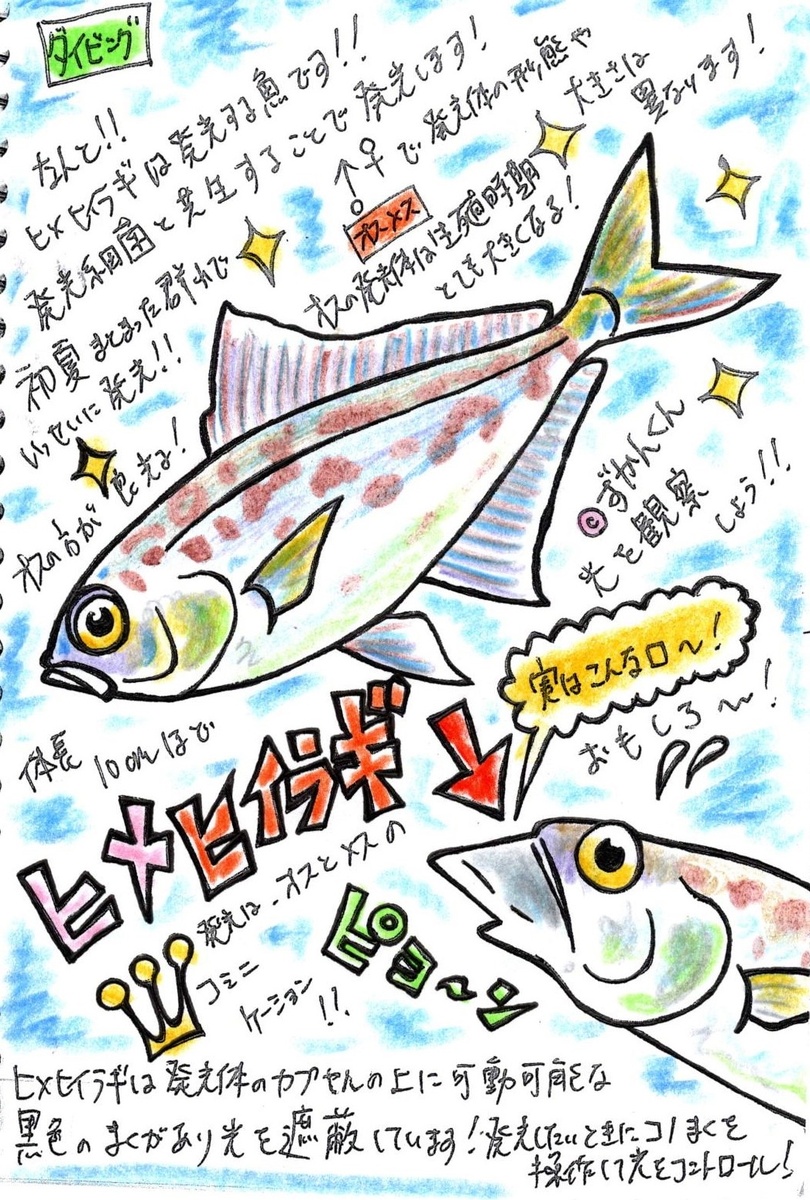 ダイビング
なんと!!
ヒメヒイラギは発光する魚です!!
発光細菌と共生することで発光します!
↑♀で発光体の形態や
大きさは
異なります!
オス メス
オスの発光体は生殖時期
とても大きくなる!
初夏まとまった群れで
いっせいに発光!!
オスの方が良く光る!
©ずかんくん
光を観察
しよう!!
実はこんな口〜!
おもしろ〜!
体長 10cmほど
ヒメヒイラギ
発光は、オスとメスの
コミニ
ケーション!!
ピョ〜ン
ヒメヒイラギは発光体のカプセルの上に可動可能な
黒色のまくがあり光を遮蔽しています!発光したいときにコノまくを
操作して光をコントロール!